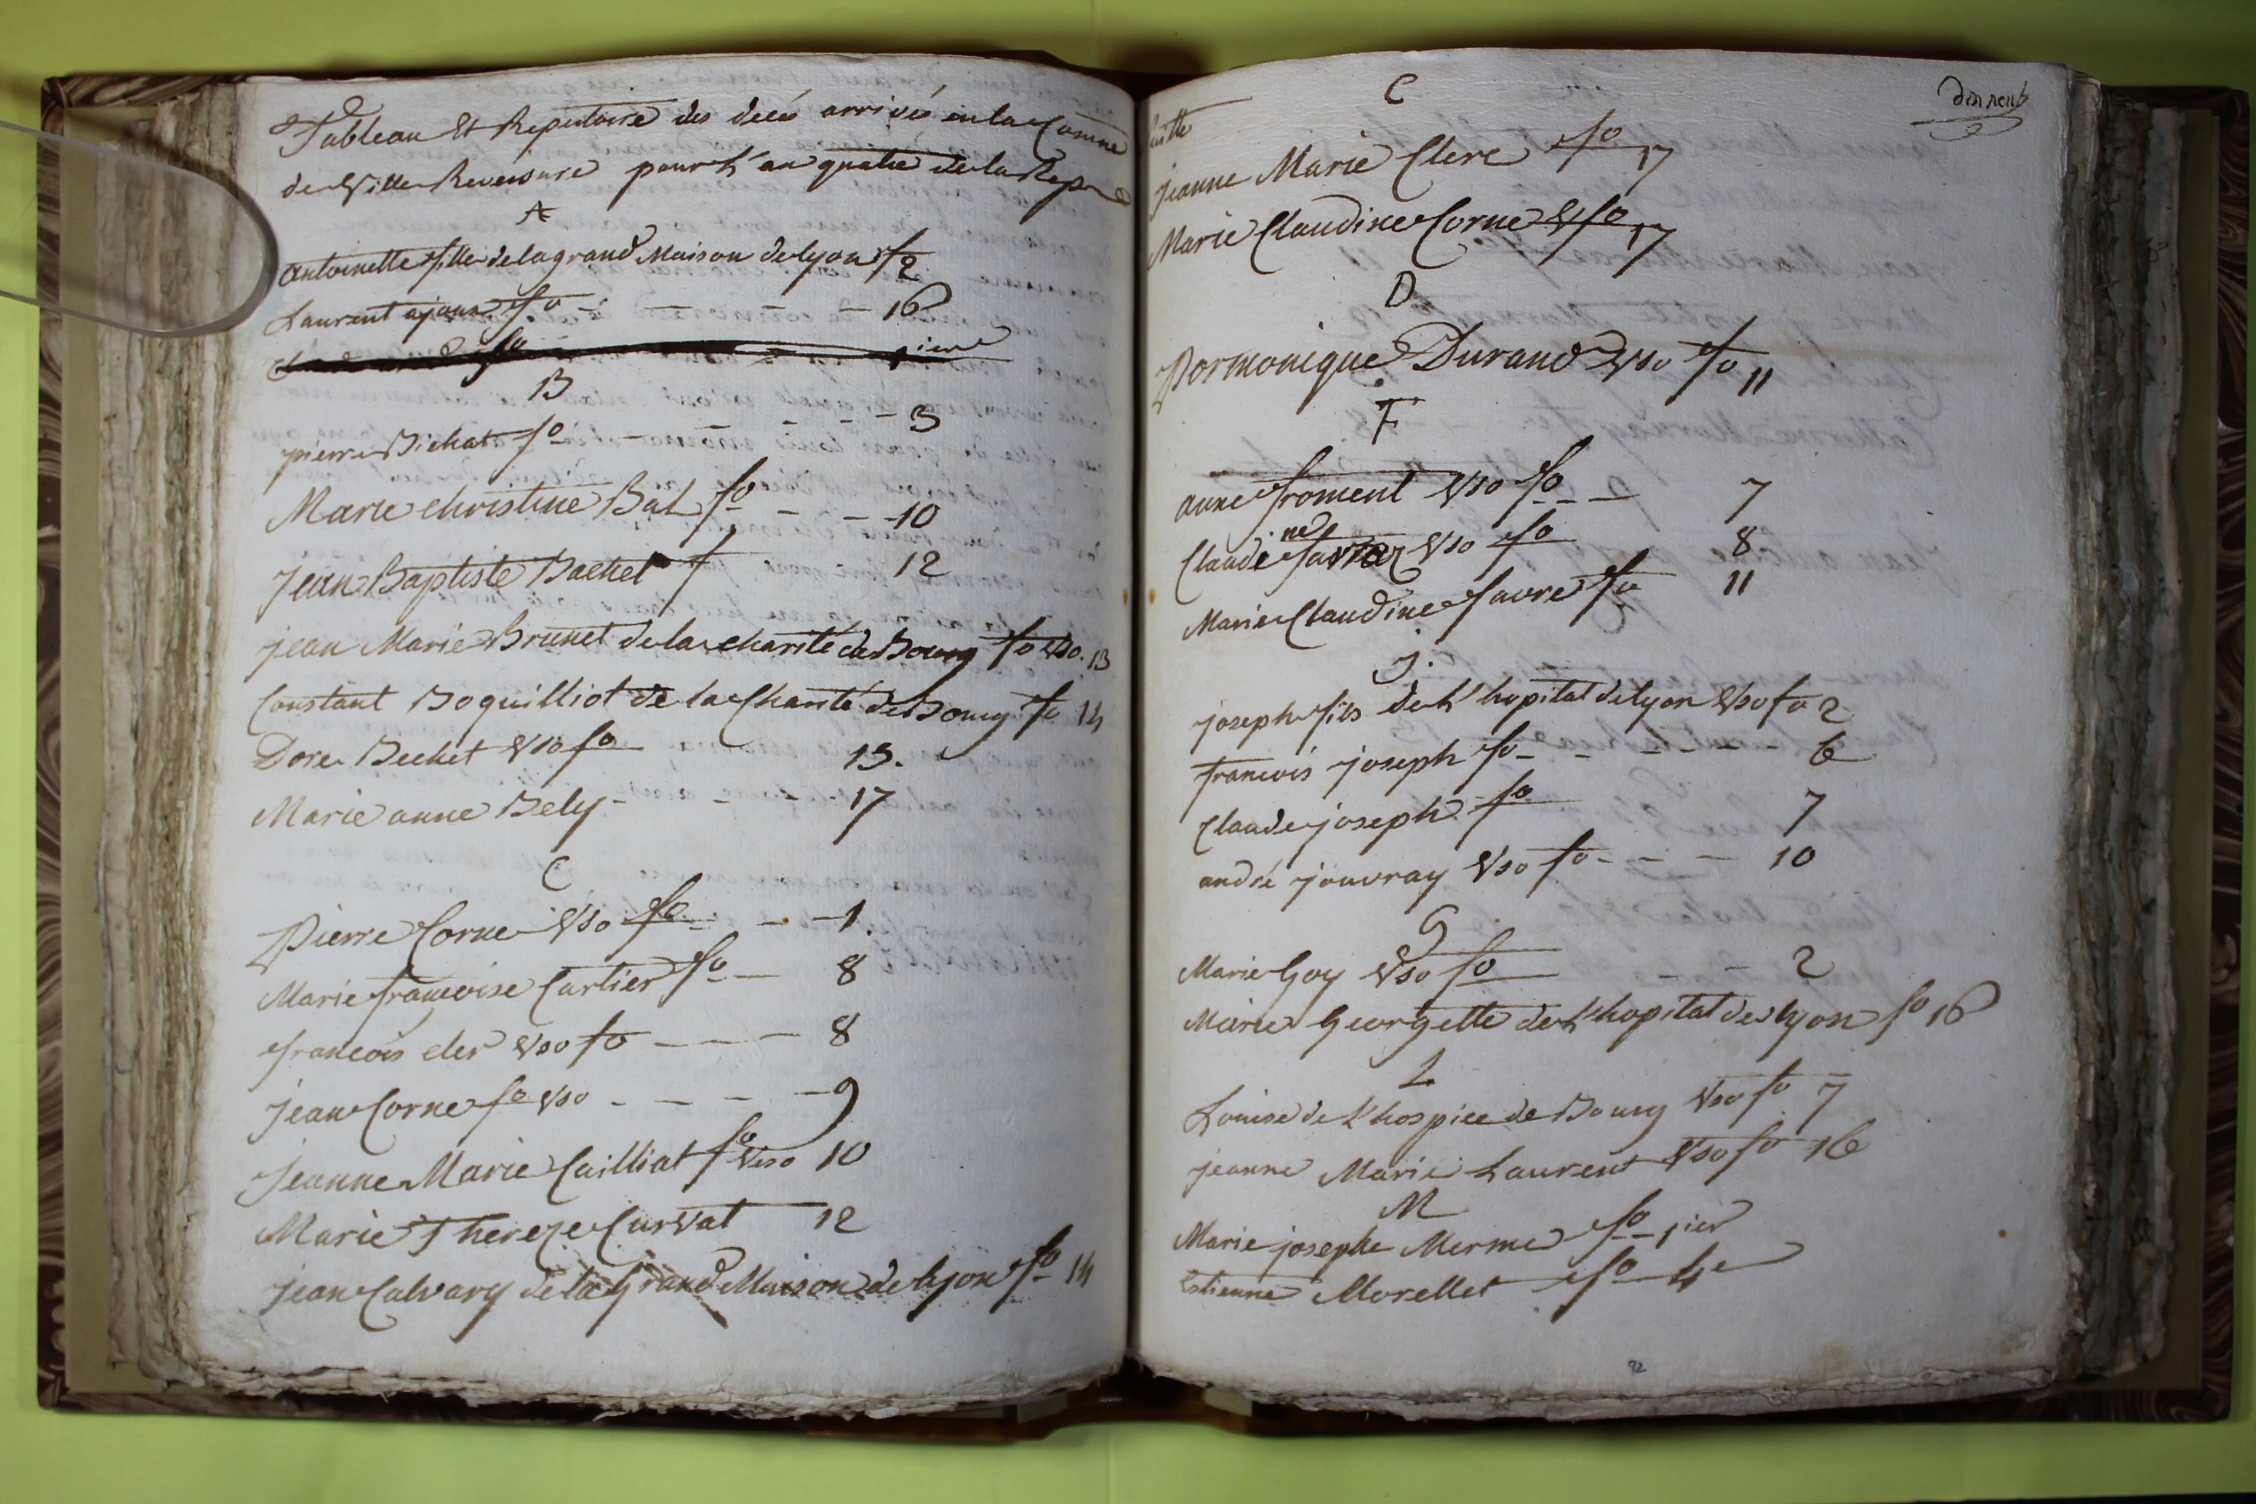 Tableau Et Repertoire des decés arrivés en la Comune
de Ville Reversure pour L'an quatre de la Rep
A
antoinette fille de la grand Maison de lyon f 2
Laurent ajoux fo - - - - 16
fo 1ier
B
pierre Bichat fo - - - - - 3
Marie christine Bal fo - - - 10
jean Baptiste Bachet f 12
jean Marie Brunet de la charité de Bourg fo vso. 13
Constant Boquilliot de la Charité de Bourg fo 14
Dore Bechet vso fo 15.
Marie anne Bely - - - 17
C
Pierre Corne vso fo - - 1.
Marie francoise Cartier fo - 8
francois cler vso fo - - - 8
jean Corne fo vso - - - - 9
Jeanne Marie Cailliat fo verso 10
Marie Thereze Curvat 12
jean Calvary de la Grand Maison de lyon fo 14
C
suitte
jeanne Marie Clerc fo 17
Marie Claudine Corne vso fo 17
D
Dormonique Durand vso fo 11
F
anne froment vso fo - - 7
Claudine favre vso fo 8
Marie Claudine favre fo 11
J.
joseph fils de L'hopital de lyon vso fo 2
francois joseph fo - - - - - - 6
Claude joseph fo 7
andré jouvray vso fo - - - 10
G
Marie Goy vso fo - - 2
Marie Georgette de L'hopital de lyon fo 16
L
Louise de L'hospice de Bourg vso fo 7
jeanne Marie Laurent vso fo 16
M
Marie josephe Merme fo - 1ier
Estienne Morellet fo 4e
92